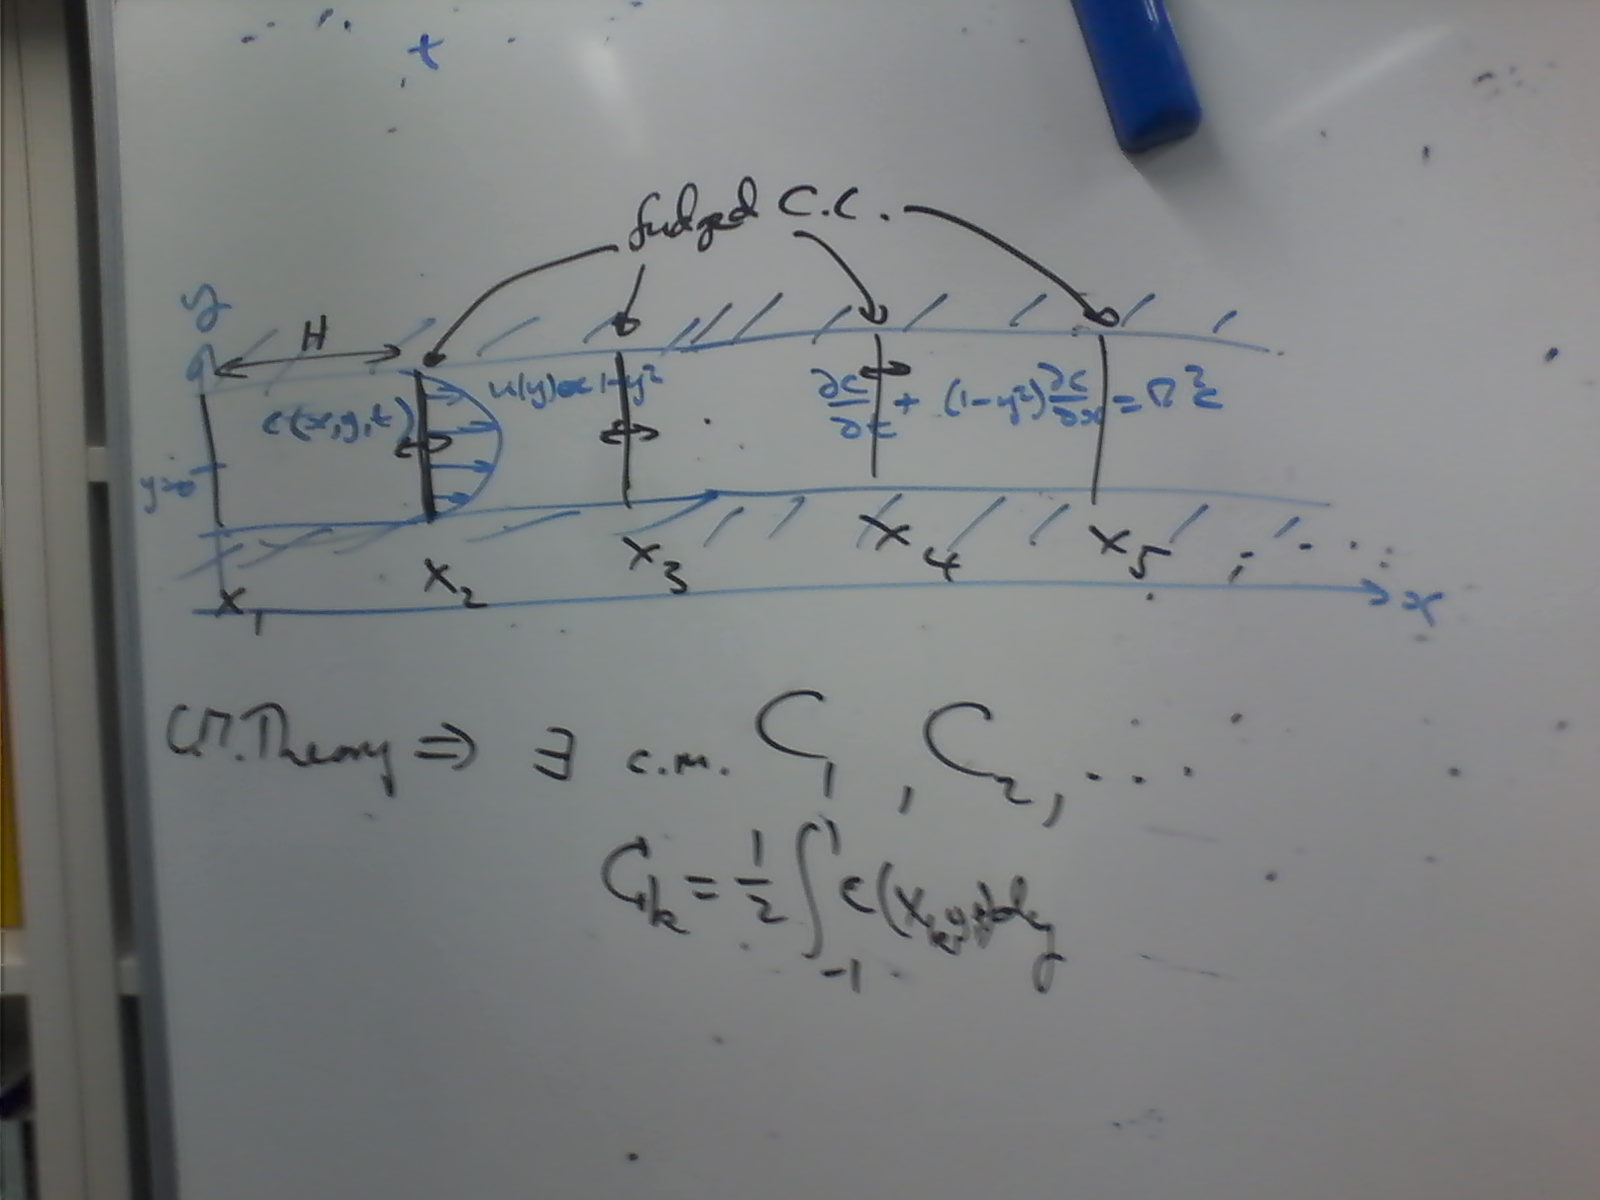 fudged C.C.
y
H
c(x,y,t)
u(y) ∝ 1-y²
∂c/∂t + (1-y²) ∂c/∂x = ∇²c
y=0
x₁ x₂ x₃ x₄ x₅ , . . . .
x
C.M. Theory ⇒ ∃ c.m. C₁, C₂, ...
Cₖ = 1/2 ∫₋₁¹ c(xₖ,y,t) dy